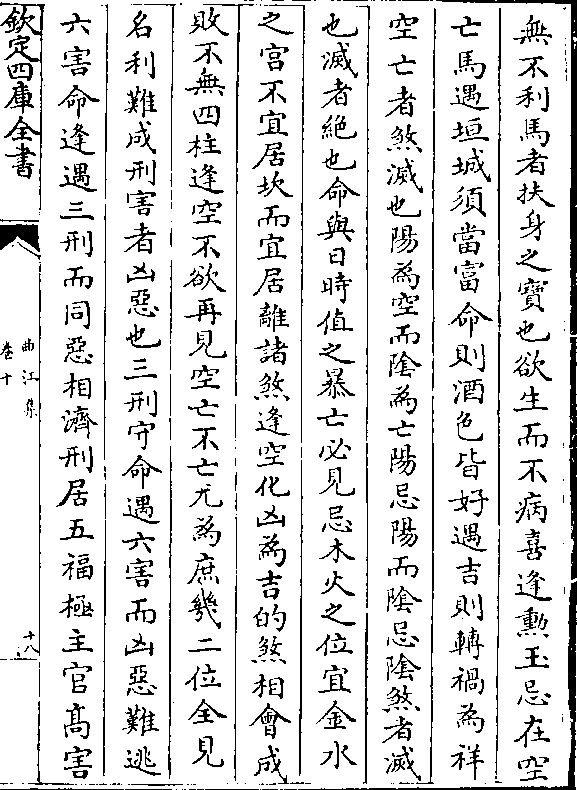 無不利馬者扶身之寶也欲生而不病喜逢勲玉忌在空
亡馬遇垣城須當富命則酒色皆好遇吉則轉禍為祥
空亡者煞滅也陽為空而隂為亡陽忌陽而隂忌隂煞者滅
也滅者絶也命與日時值之暴亡必見忌木火之位宜金水
之宫不宜居坎而宜居離諸煞逢空化凶為吉的煞相會成
敗不無四柱逢空不欲再見空亡不亡尤為庶幾二位全見
名利難成刑害者凶惡也三刑守命遇六害而凶惡難逃
六害命逢遇三刑而同惡相濟刑居五福極主官髙害
欽定四庫全書
曲江集
卷十
十八